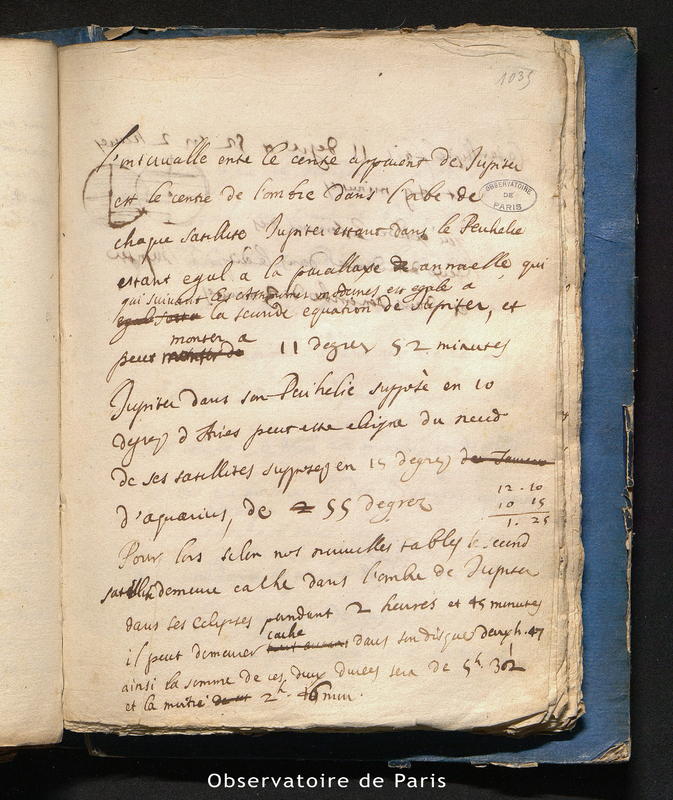 1035
L'intervalle entre le centre apparent de Jupiter
OBSERVATOIRE DE PARIS
est le centre de l'ombre dans l'orbe de
chaque satellite Jupiter estant dans le Perihelie
estant egal a la parallaxe annuelle, qui
qui suivant les Astronomes modernes est egale a
la seconde equation de Jupiter, et
monter a
peut 11 degrez 52 minutes
Jupiter dans son Perihelie supposé en 10
degrez d'Aries peut estre eloigné du neud
de ses satellites supposez en 15 degrez
d'aquarius, de 55 degrez
12 . 10
10 15
1. 25
Pour lors selon nos nouvelles tables le second
satellite demeure caché dans l'ombre de Jupiter
dans ses eclipses pendant 2 heures et 45 minutes
caché
il peut demeurer dans son disque deux h. 47
ainsi la somme de ces deux durées sera de 5h. 32
et la moitié 2h. 46 min.
Observatoire de Paris